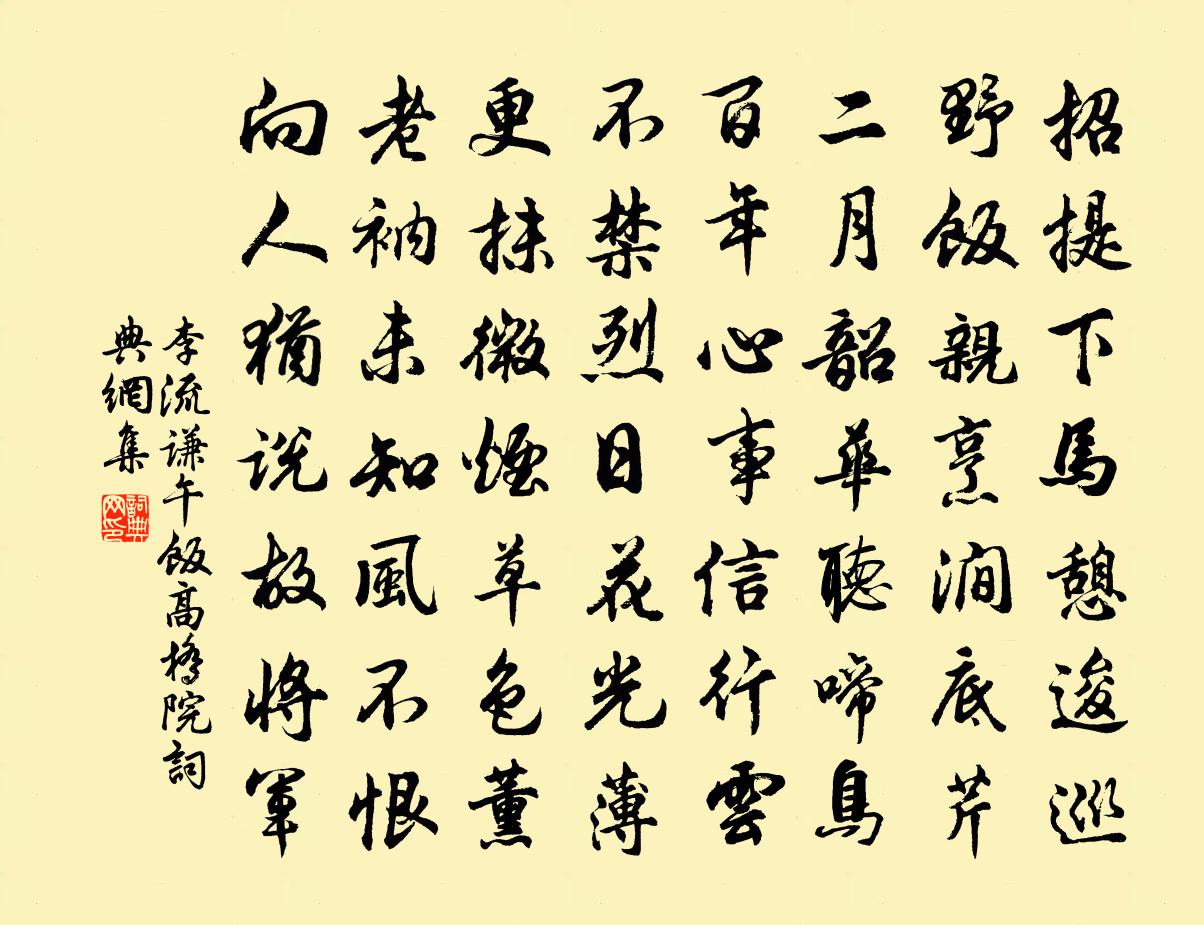 招提下馬憩逡巡
野飯親烹澗底芹
二月韶華聽啼鳥
百年心事信行雲
不禁烈日花光薄
更抹微煙草色薰
老衲未知風不恨
向人猶説故將軍
李流謙午飯高橋院詞
典網集
詞典
网印